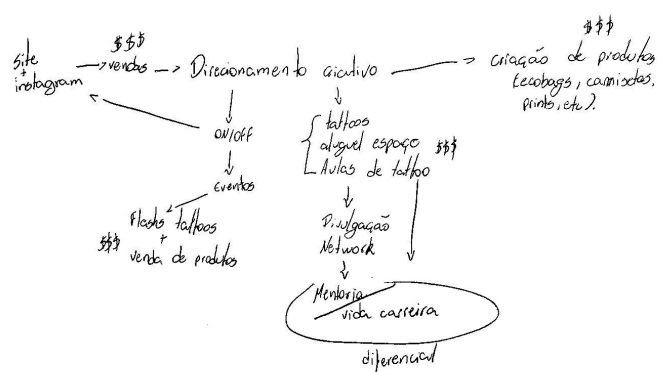 $$$
$$$
site
+
instagram
vendas
Direcionamento criativo
criação de produtos
(ecobags, camisetas,
prints, etc).
ON/OFF
Eventos
Flashs tattoos
+
$$$
venda de produtos
tattoos
aluguel espaço
Aulas de tattoo
$$$
Divulgação
Network
Mentoria
vida carreira
diferencial